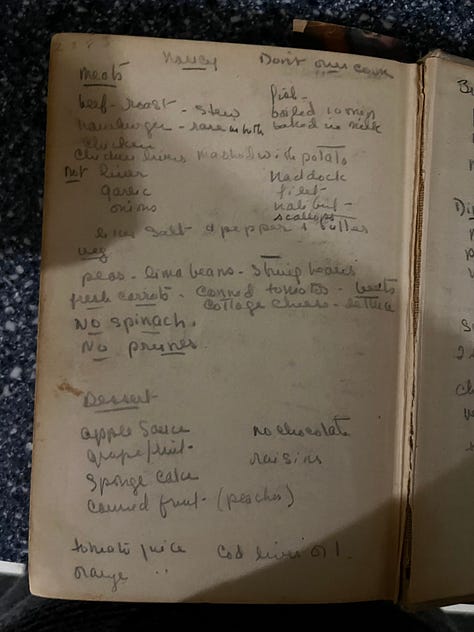 Nancy Don't over cook
Meats fish -
beef - roast - stew boiled 10 min
hamburger - rare with baked in milk
chicken
chicken livers mashed with potato
not liver haddock
garlic filet
onions halibut -
scallops
likes salt & pepper & butter
veg
peas - lima beans - string beans
fresh carrots - canned tomatoes - beets
cottage cheese - lettuce
No spinach.
No prunes.
Dessert
apple sauce no chocolate
grapefruit - raisins
sponge cake
canned fruit - (peaches)
tomato juice cod liver oil.
orange " "